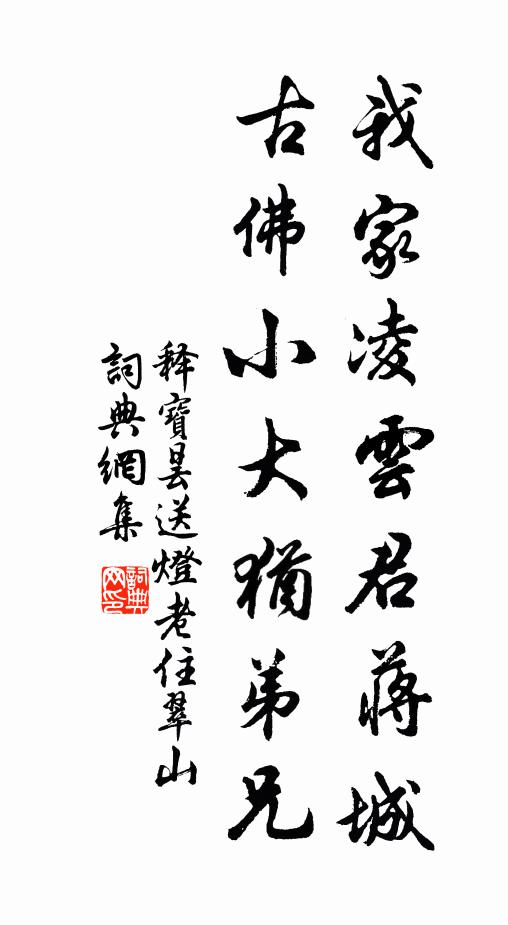 我家凌雲君蔣城
古佛小大猶弟兄
释寶曇送燈老住翠山
詞典網集
詞典網印